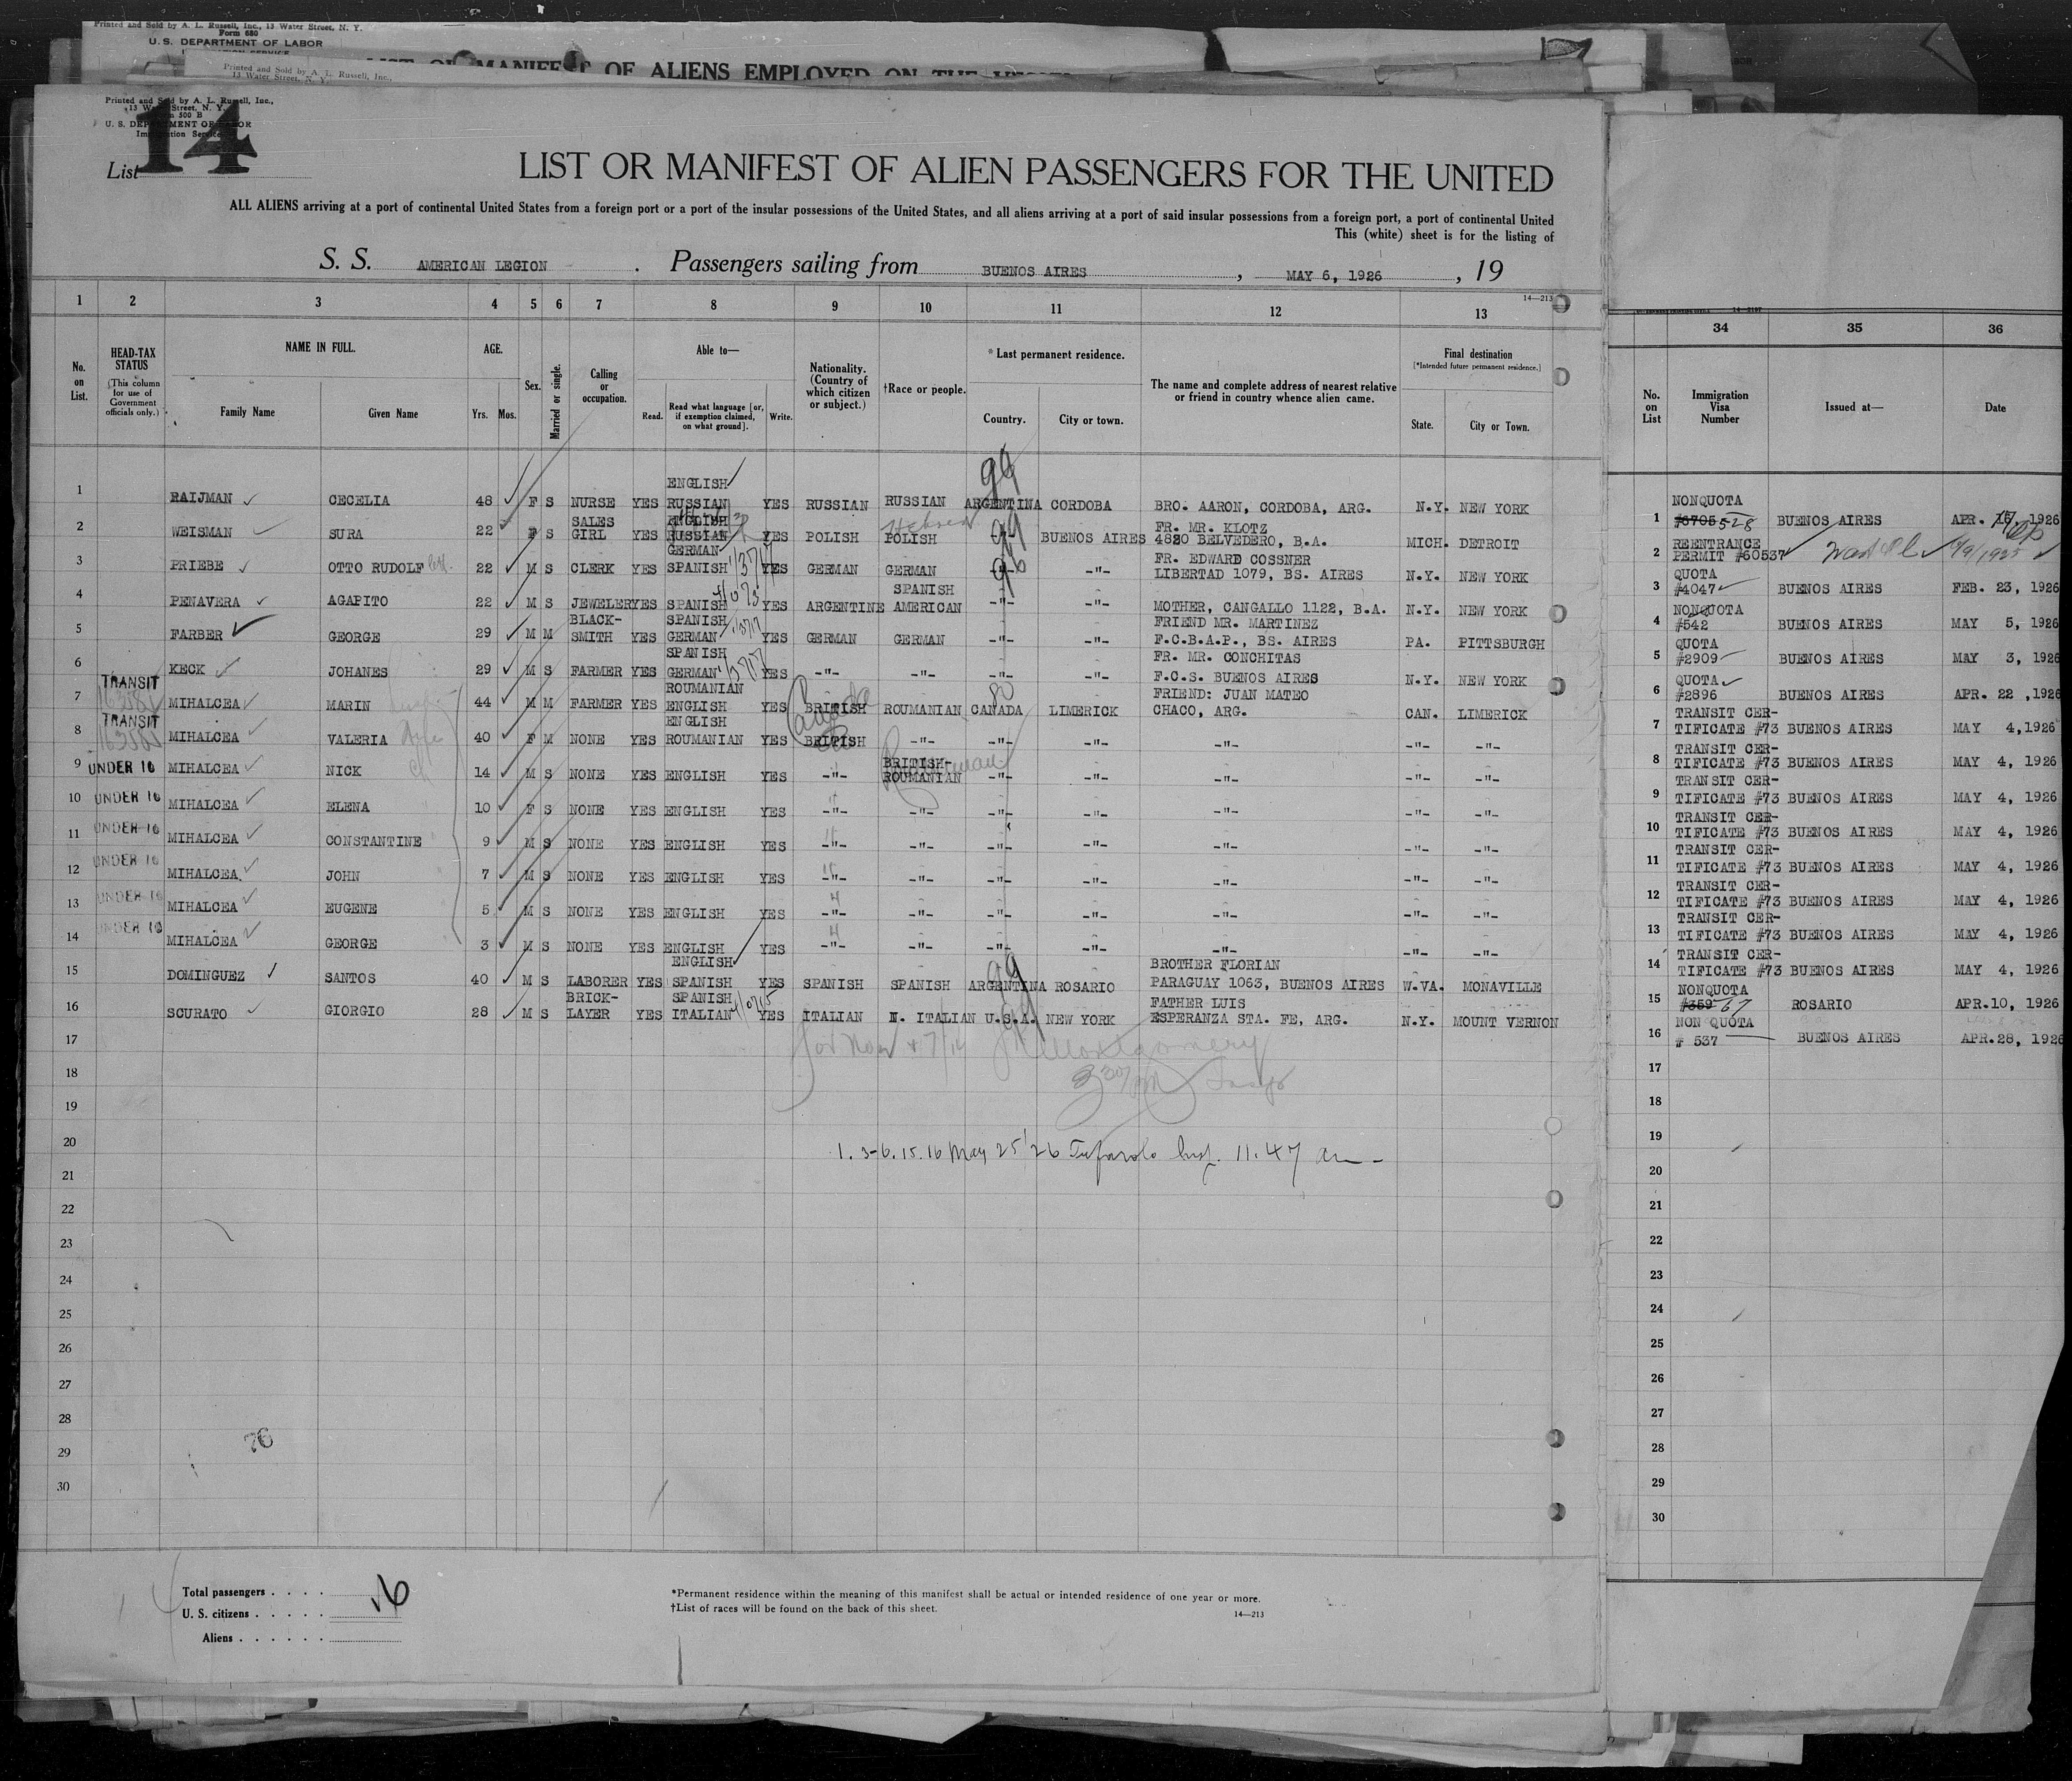 Printed and Sold by A. L. Russell, Inc., 13 Water Street, N. Y.
Form 680
U. S. DEPARTMENT OF LABOR
MANIFEST OF ALIENS EMPLOYED ON THE
Printed and Sold by A. L. Russell, Inc.,
13 Water Street, N. Y.
Printed and Sold by A. L. Russell, Inc.,
13 Water Street, N. Y.
Form 500 B
U. S. DEPARTMENT OF LABOR
Immigration Service
List 14
LIST OR MANIFEST OF ALIEN PASSENGERS FOR THE UNITED
ALL ALIENS arriving at a port of continental United States from a foreign port or a port of the insular possessions of the United States, and all aliens arriving at a port of said insular possessions from a foreign port, a port of continental United
This (white) sheet is for the listing of
S. S. AMERICAN LEGION . Passengers sailing from BUENOS AIRES , MAY 6, 1926 , 19
14—213
1 2 3 4 5 6 7 8 9 10 11 12 13 34 35 36
No. on List. HEAD-TAX STATUS (This column for use of Government officials only.) NAME IN FULL. Family Name Given Name AGE. Yrs. Mos. Sex. Married or single. Calling or occupation. Able to— Read. Read what language [or, if exemption claimed, on what ground]. Write. Nationality. (Country of which citizen or subject.) †Race or people. *Last permanent residence. Country. City or town. The name and complete address of nearest relative or friend in country whence alien came. Final destination [*Intended future permanent residence.] State. City or Town. No. on List Immigration Visa Number Issued at— Date
99
ENGLISH NONQUOTA
1 RAIJMAN CECELIA 48 F S NURSE YES RUSSIAN YES RUSSIAN RUSSIAN ARGENTINA CORDOBA BRO. AARON, CORDOBA, ARG. N.Y. NEW YORK 1 #6705 528 BUENOS AIRES APR. 1926
SALES ENGLISH Hebrew FR. MR. KLOTZ REENTRANCE
2 WEISMAN SURA 22 F S GIRL YES RUSSIAN YES POLISH POLISH -"- BUENOS AIRES 4820 BELVEDERO, B.A. MICH. DETROIT 2 PERMIT #60537 9/9/1925
GERMAN FR. EDWARD COSSNER QUOTA
3 PRIEBE OTTO RUDOLF 22 M S CLERK YES SPANISH YES GERMAN GERMAN -"- -"- LIBERTAD 1079, BS. AIRES N.Y. NEW YORK 3 #4047 BUENOS AIRES FEB. 23, 1926
SPANISH NONQUOTA
4 PENAVERA AGAPITO 22 M S JEWELER YES SPANISH YES ARGENTINE AMERICAN -"- -"- MOTHER, CANGALLO 1122, B.A. N.Y. NEW YORK 4 #542 BUENOS AIRES MAY 5, 1926
BLACK- SPANISH FRIEND MR. MARTINEZ QUOTA
5 FARBER GEORGE 29 M M SMITH YES GERMAN YES GERMAN GERMAN -"- -"- F.C.B.A.P., BS. AIRES PA. PITTSBURGH 5 #2909 BUENOS AIRES MAY 3, 1926
SPANISH FR. MR. CONCHITAS QUOTA
6 KECK JOHANES 29 M S FARMER YES GERMAN YES -"- -"- -"- -"- F.C.S. BUENOS AIRES N.Y. NEW YORK 6 #2896 BUENOS AIRES APR. 22, 1926
TRANSIT ROUMANIAN Canada 80 FRIEND: JUAN MATEO TRANSIT CER-
7 MIHALCEA MARIN 44 M M FARMER YES ENGLISH YES BRITISH ROUMANIAN CANADA LIMERICK CHACO, ARG. CAN. LIMERICK 7 TIFICATE #73 BUENOS AIRES MAY 4, 1926
TRANSIT ENGLISH TRANSIT CER-
8 MIHALCEA VALERIA 40 F M NONE YES ROUMANIAN YES BRITISH -"- -"- -"- -"- -"- -"- 8 TIFICATE #73 BUENOS AIRES MAY 4, 1926
BRITISH- TRANSIT CER-
9 UNDER 16 MIHALCEA NICK 14 M S NONE YES ENGLISH YES -"- ROUMANIAN -"- -"- -"- -"- -"- 9 TIFICATE #73 BUENOS AIRES MAY 4, 1926
TRANSIT CER-
10 UNDER 16 MIHALCEA ELENA 10 F S NONE YES ENGLISH YES -"- -"- -"- -"- -"- -"- -"- 10 TIFICATE #73 BUENOS AIRES MAY 4, 1926
TRANSIT CER-
11 UNDER 16 MIHALCEA CONSTANTINE 9 M S NONE YES ENGLISH YES -"- -"- -"- -"- -"- -"- -"- 11 TIFICATE #73 BUENOS AIRES MAY 4, 1926
TRANSIT CER-
12 UNDER 16 MIHALCEA JOHN 7 M S NONE YES ENGLISH YES -"- -"- -"- -"- -"- -"- -"- 12 TIFICATE #73 BUENOS AIRES MAY 4, 1926
TRANSIT CER-
13 UNDER 16 MIHALCEA EUGENE 5 M S NONE YES ENGLISH YES -"- -"- -"- -"- -"- -"- -"- 13 TIFICATE #73 BUENOS AIRES MAY 4, 1926
TRANSIT CER-
14 UNDER 16 MIHALCEA GEORGE 3 M S NONE YES ENGLISH YES -"- -"- -"- -"- -"- -"- -"- 14 TIFICATE #73 BUENOS AIRES MAY 4, 1926
ENGLISH 99 BROTHER FLORIAN NONQUOTA
15 DOMINGUEZ SANTOS 40 M S LABORER YES SPANISH YES SPANISH SPANISH ARGENTINA ROSARIO PARAGUAY 1063, BUENOS AIRES W.VA. MONAVILLE 15 #359 67 ROSARIO APR.10, 1926
BRICK- SPANISH FATHER LUIS NON QUOTA
16 SCURATO GIORGIO 28 M S LAYER YES ITALIAN YES ITALIAN N. ITALIAN U.S.A. NEW YORK ESPERANZA STA. FE, ARG. N.Y. MOUNT VERNON 16 # 537 BUENOS AIRES APR.28, 1926
17 Montgomery 17
18 18
19 19
20 1. 3-6. 15. 16 May 25 '26 Insp. 11.47 am 20
21 21
22 22
23 23
24 24
25 25
26 26
27 27
28 28
29 76 29
30 30
Total passengers . . . . 16
U. S. citizens . . . . .
Aliens . . . . . .
*Permanent residence within the meaning of this manifest shall be actual or intended residence of one year or more.
†List of races will be found on the back of this sheet.
14—213